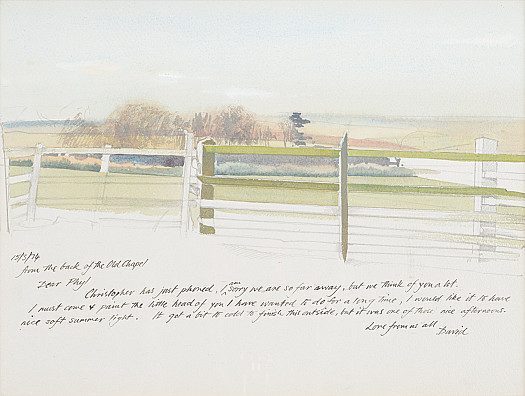 13/3/74
from the back of the Old Chapel
Dear Phyl
Christopher has just phoned, I am sorry we are so far away, but we think of you a lot.
I must come & paint the little head of you I have wanted to do for a long time, I would like it to have
nice soft summer light. It got a bit to cold to finish this outside, but it was one of those nice afternoons.
Love from us all
David